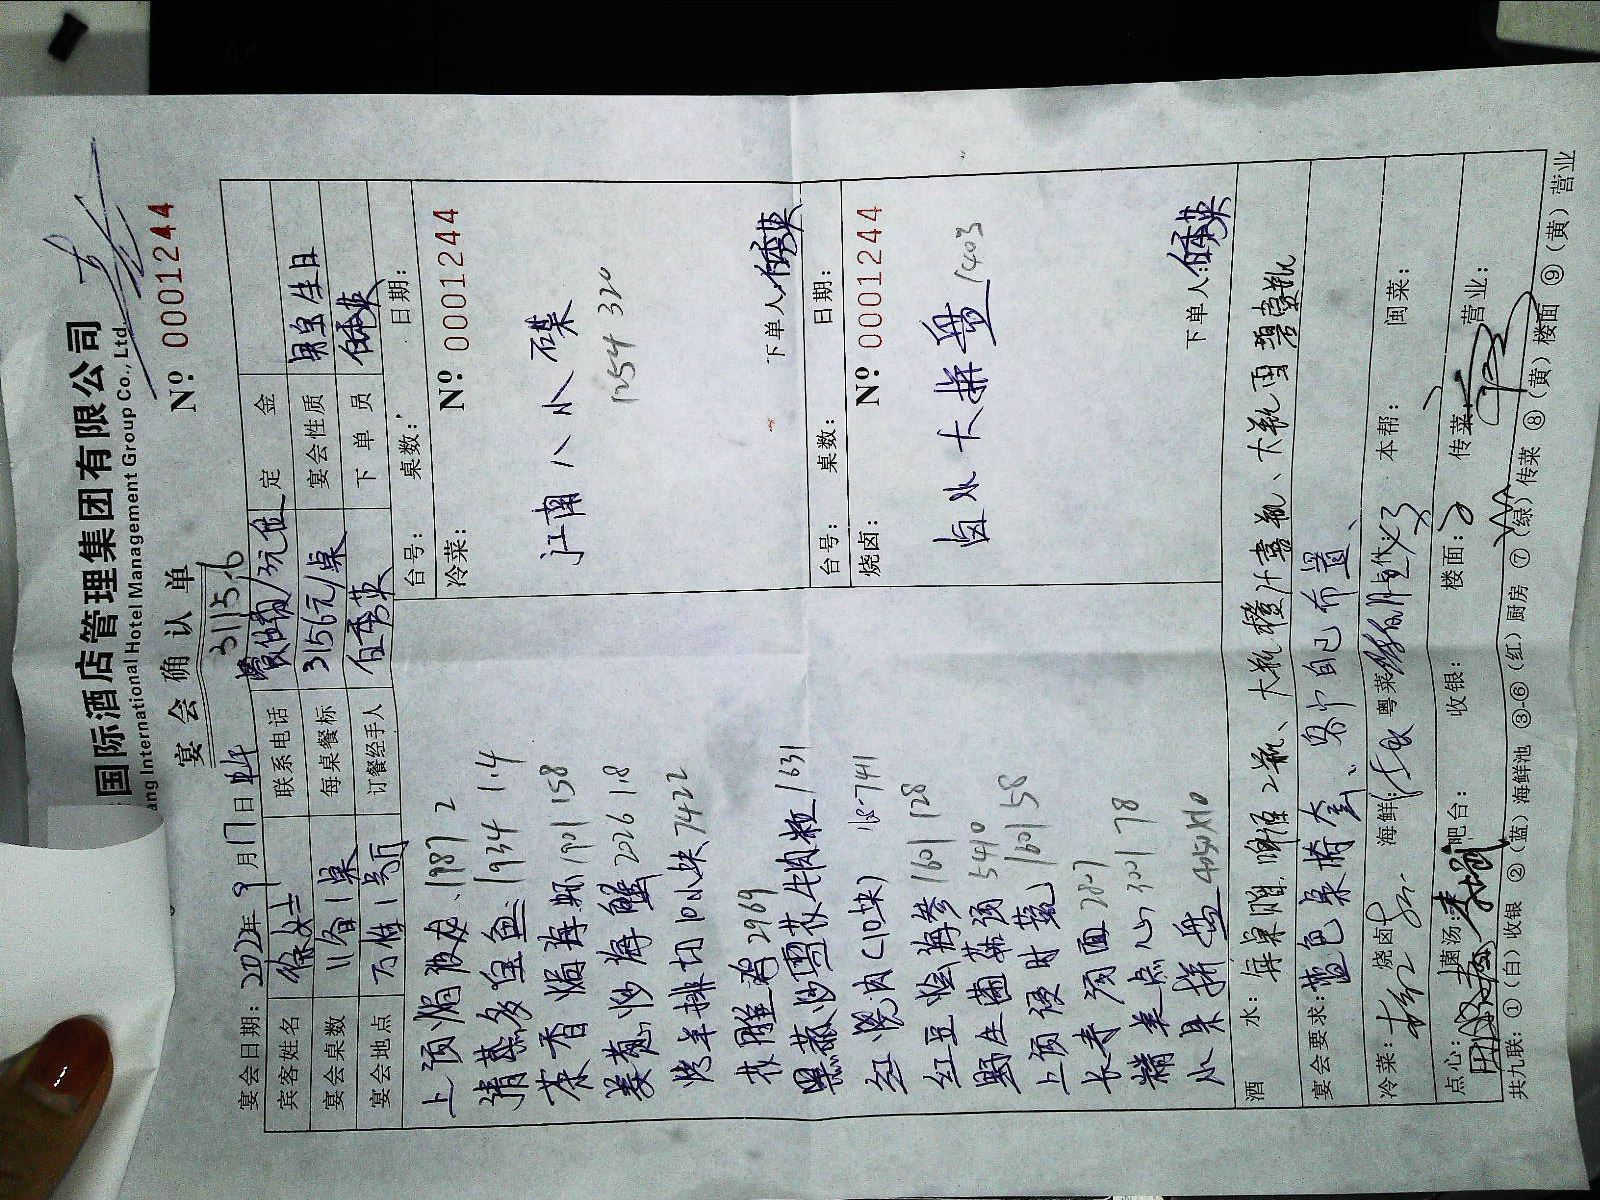 国际酒店管理集团有限公司
International Hotel Management Group Co., Ltd.
宴会确认单
№ 0001244
3115.6
宴会日期: 2022年9月17日
宾客姓名 徐女士 联系电话 定金
宴会桌数 11备1桌 每桌餐标 3156元/桌 宴会性质 男宝生日
宴会地点 订餐经手人 任秀英 下单员 任秀英
上顶焗波龙 1987 2
清蒸多宝鱼 1934 1.4
茶香焗海虾 1701 158
姜葱炒海蟹 2026 1.8
烤羊排切10小块 7422
花雕鸡 2969
黑椒炒雪花牛肉粒 1631
红烧肉(10块) 7411
红豆烩海参 1601 128
野生菌 5410
上顶浸时蔬 1601 58
长寿面 2807
精美点心 3001 78
水果拼盘 405
台号: 桌数: 日期:
冷菜: № 0001244
江南八小碟
1254 320
下单人: 任秀英
台号: 桌数: 日期:
烧卤: № 0001244
卤水大拼盘 1403
下单人: 任秀英
酒水: 每桌 啤酒2瓶、大瓶橙汁壹瓶、大瓶雪碧壹瓶
宴会要求: 蓝色桌椅套、客户自己布置、
冷菜: 烧卤: 海鲜: 粤菜: 本帮: 闽菜:
点心: 菌汤: 吧台: 收银: 楼面: 传菜: 营业:
共九联: ①(白)收银 ②(蓝)海鲜池 ③-⑥(红)厨房 ⑦(绿)传菜 ⑧(黄)楼面 ⑨(黄)营业